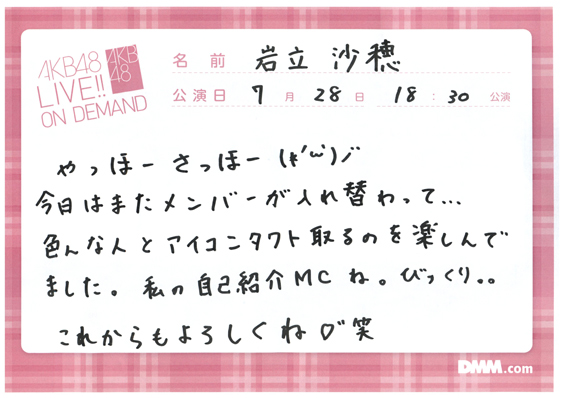 AKB48
LIVE!!
ON DEMAND
AKB
48
名前 岩立 沙穂
公演日 7月28日 18:30 公演
やっほー さっほー (*'ω')ノ
今日はまたメンバーが入れ替わって...
色んな人とアイコンタクト取るのを楽しんで
ました。私の自己紹介MCね。びっくり。。
これからもよろしくね♡笑
DMM.com